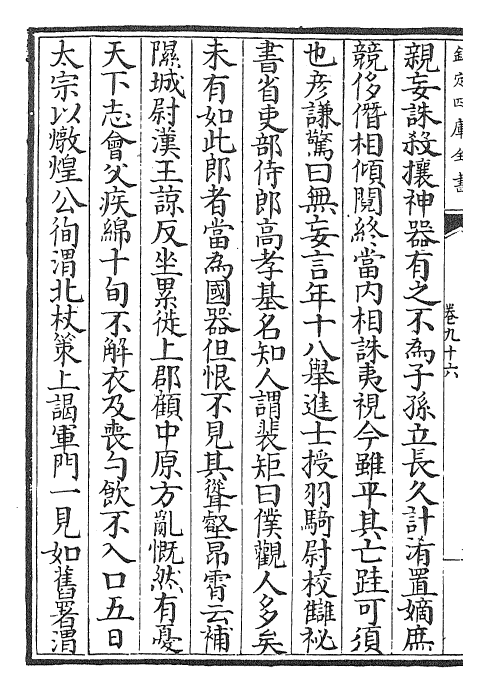 欽定四庫全書
卷九十六
親妄誅殺攘神器有之不為子孫立長久計淆置嫡庶
競侈僭相傾䦧終當内相誅夷視今雖平其亡跬可須
也彦謙驚曰無妄言年十八舉進士授羽騎尉校讎祕
書省吏部侍郎髙孝基名知人謂裴矩曰僕觀人多矣
未有如此郎者當為國器但恨不見其聳壑昂霄云補
隰城尉漢王諒反坐累徙上郡顧中原方亂慨然有憂
天下志㑹父疾綿十旬不解衣及喪勺飲不入口五日
太宗以燉煌公徇渭北杖策上謁軍門一見如舊署渭